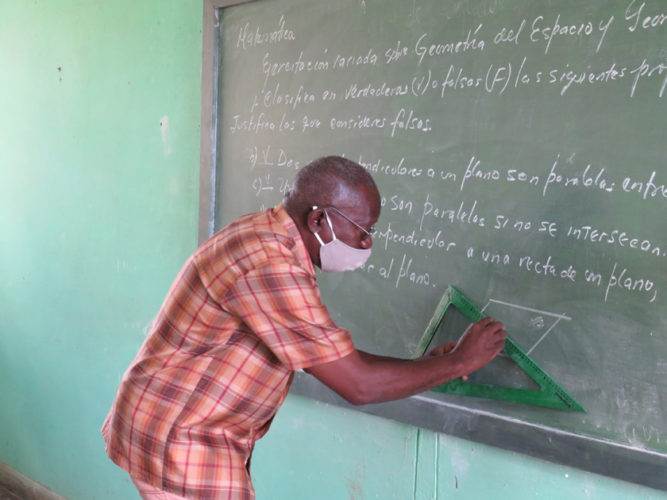 Matemática
Ejercitación variada sobre Geometría del Espacio y Geo
1. Clasifica en verdaderas (V) o falsas (F) las siguientes pro
Justifica las que consideres falsas.
a) V Dos perpendiculares a un plano son paralelas entre
son paralelas si no se intersecan.
perpendicular a una recta de un plano,
al plano.